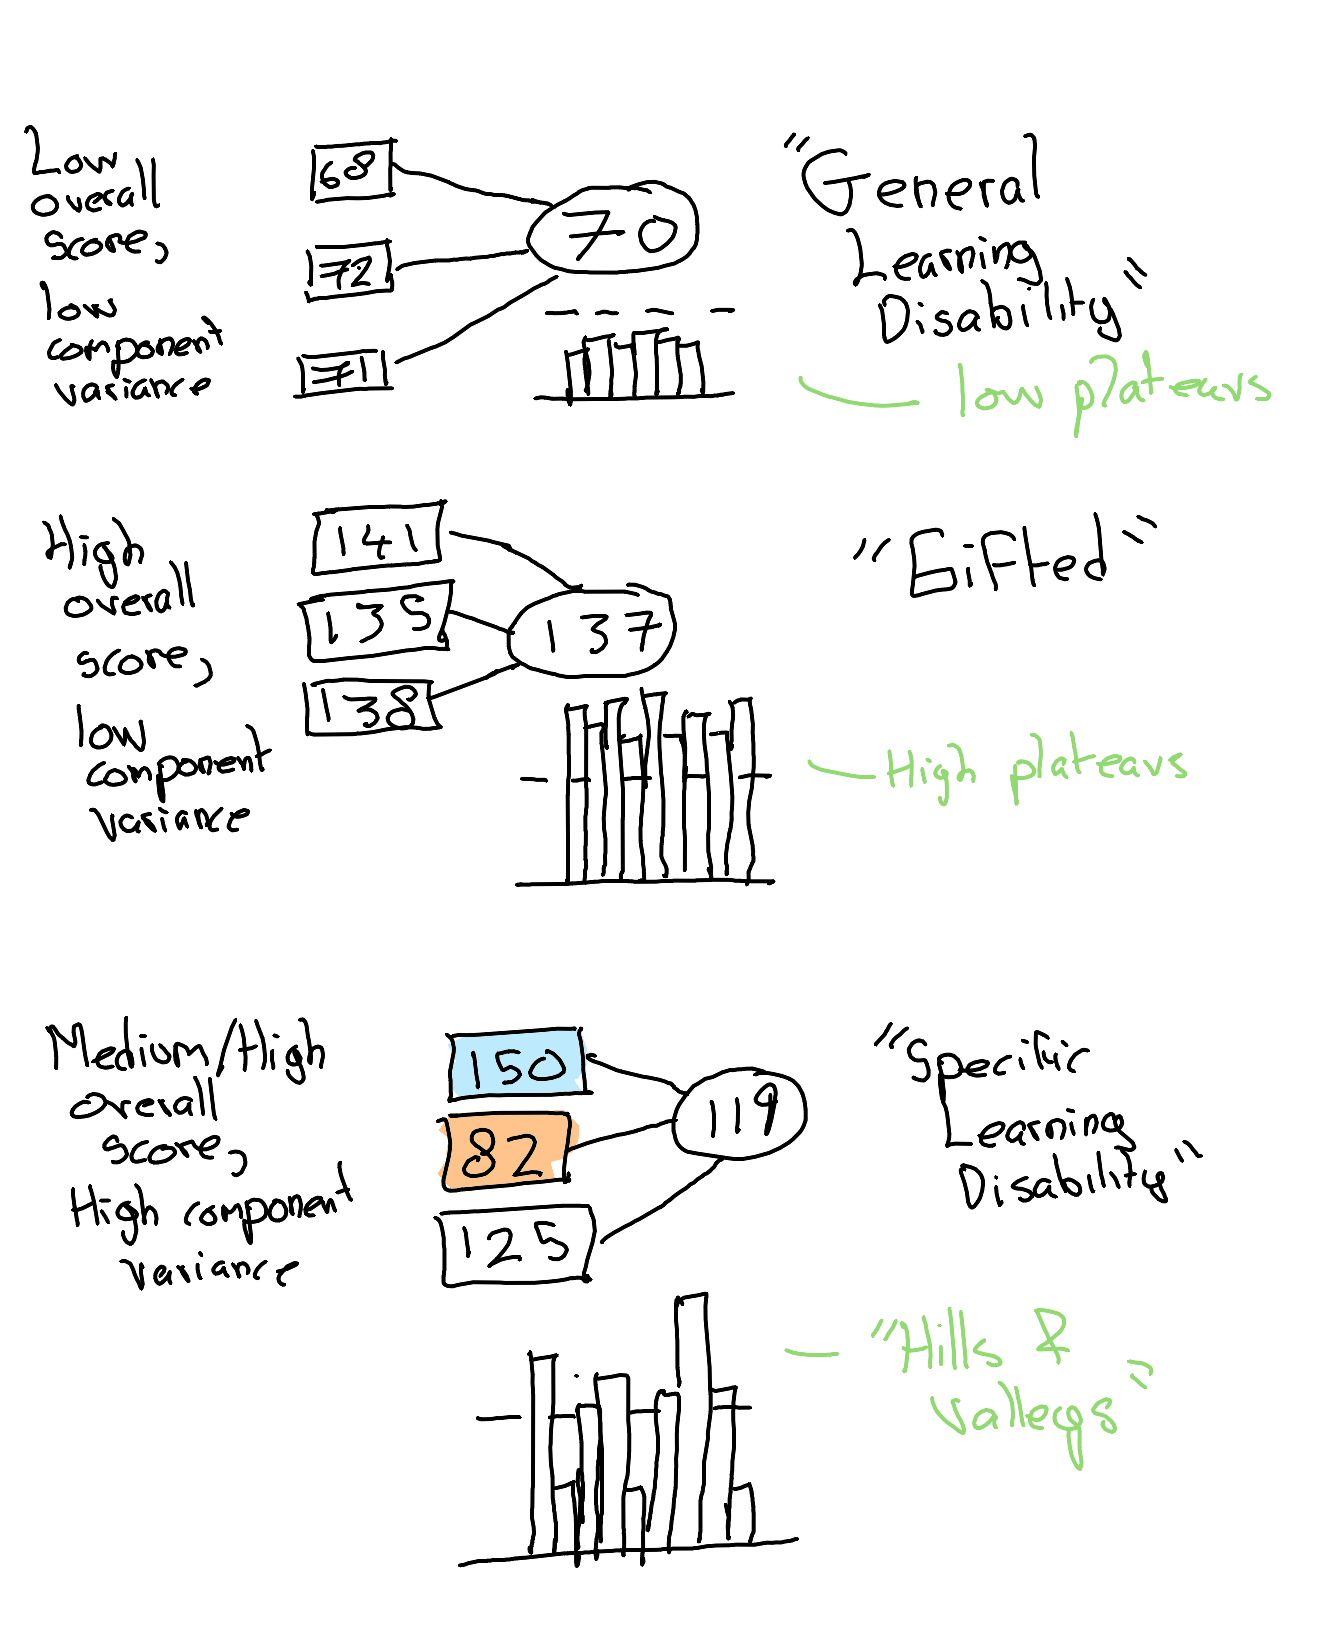 Low
overall
score,
low
component
variance
68
72
71
70
"General
Learning
Disability"
low plateaus
High
overall
score,
low
component
variance
141
135
138
137
"Gifted"
High plateaus
Medium/High
overall
score,
High component
variance
150
82
125
119
"Specific
Learning
Disability"
"Hills &
valleys"